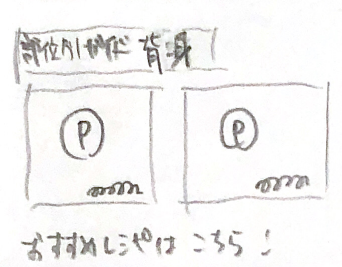 部位別ガイド 背身
P P
おすすめレシピはこちら！